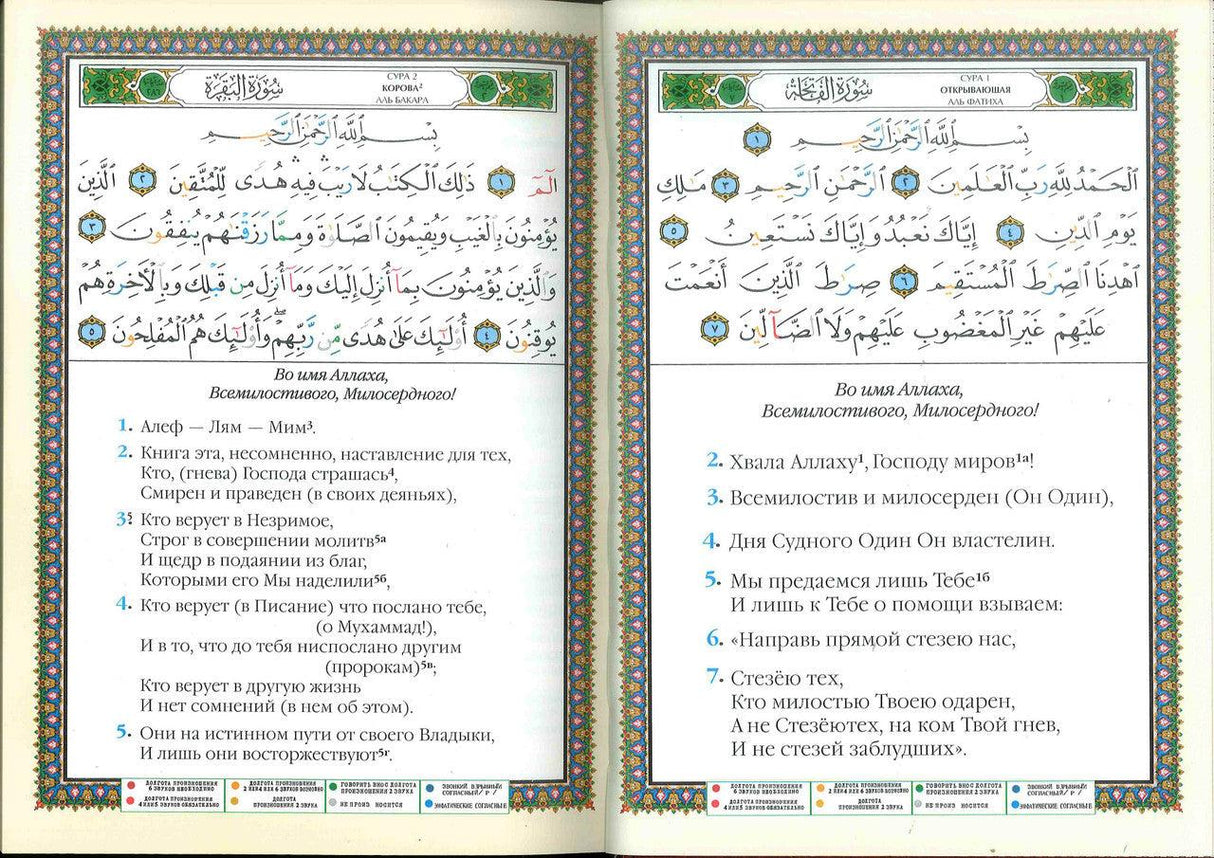 سُورَةُ الْفَاتِحَةِ
СУРА 1
ОТКРЫВАЮЩАЯ
АЛЬ ФАТИХА
بِسْمِ ٱللَّهِ ٱلرَّحْمَٰنِ ٱلرَّحِيمِ ١
ٱلْحَمْدُ لِلَّهِ رَبِّ ٱلْعَٰلَمِينَ ٢ ٱلرَّحْمَٰنِ ٱلرَّحِيمِ ٣ مَٰلِكِ
يَوْمِ ٱلدِّينِ ٤ إِيَّاكَ نَعْبُدُ وَإِيَّاكَ نَسْتَعِينُ ٥
ٱهْدِنَا ٱلصِّرَٰطَ ٱلْمُسْتَقِيمَ ٦ صِرَٰطَ ٱلَّذِينَ أَنْعَمْتَ
عَلَيْهِمْ غَيْرِ ٱلْمَغْضُوبِ عَلَيْهِمْ وَلَا ٱلضَّآلِّينَ ٧
Во имя Аллаха,
Всемилостивого, Милосердного!
2. Хвала Аллаху¹, Господу миров¹ᵃ!
3. Всемилостив и милосерден (Он Один),
4. Дня Судного Один Он властелин.
5. Мы предаемся лишь Тебе¹ᵇ
И лишь к Тебе о помощи взываем:
6. «Направь прямой стезею нас,
7. Стезёю тех,
Кто милостью Твоею одарен,
А не Стезёютех, на ком Твой гнев,
И не стезей заблудших».
ДОЛГОТА ПРОИЗНОШЕНИЯ
6 ЗВУКОВ НЕОБХОДИМО
ДОЛГОТА ПРОИЗНОШЕНИЯ
2 ИЛИ 4 ИЛИ 6 ЗВУКОВ ВОЗМОЖНО
ГОВОРИТЬ В НОС ДОЛГОТА
ПРОИЗНОШЕНИЯ 2 ЗВУКА
ЗВОНКИЙ ВЗРЫВНЫЙ
СОГЛАСНЫЙ / Р /
ДОЛГОТА ПРОИЗНОШЕНИЯ
4 ИЛИ 5 ЗВУКОВ ОБЯЗАТЕЛЬНО
ДОЛГОТА
ПРОИЗНОШЕНИЯ 2 ЗВУКА
НЕ ПРОИЗ НОСИТСЯ
ЭМФАТИЧЕСКИЕ СОГЛАСНЫЕ
سُورَةُ الْبَقَرَةِ
СУРА 2
КОРОВА²
АЛЬ БАКАРА
بِسْمِ ٱللَّهِ ٱلرَّحْمَٰنِ ٱلرَّحِيمِ
الٓمٓ ١ ذَٰلِكَ ٱلْكِتَٰبُ لَا رَيْبَ ۛ فِيهِ ۛ هُدًى لِّلْمُتَّقِينَ ٢ ٱلَّذِينَ
يُؤْمِنُونَ بِٱلْغَيْبِ وَيُقِيمُونَ ٱلصَّلَوٰةَ وَمِمَّا رَزَقْنَٰهُمْ يُنفِقُونَ ٣
وَٱلَّذِينَ يُؤْمِنُونَ بِمَآ أُنزِلَ إِلَيْكَ وَمَآ أُنزِلَ مِن قَبْلِكَ وَبِٱلْأَخِرَةِ هُمْ
يُوقِنُونَ ٤ أُو۟لَٰٓئِكَ عَلَىٰ هُدًى مِّن رَّبِّهِمْ ۖ وَأُو۟لَٰٓئِكَ هُمُ ٱلْمُفْلِحُونَ ٥
Во имя Аллаха,
Всемилостивого, Милосердного!
1. Алеф — Лям — Мим³.
2. Книга эта, несомненно, наставление для тех,
Кто, (гнева) Господа страшась⁴,
Смирен и праведен (в своих деяньях),
3⁵. Кто верует в Незримое,
Строг в совершении молитв⁵ᵃ
И щедр в подаянии из благ,
Которыми его Мы наделили⁵ᵇ,
4. Кто верует (в Писание) что послано тебе,
(о Мухаммад!),
И в то, что до тебя ниспослано другим
(пророкам)⁵ᵛ;
Кто верует в другую жизнь
И нет сомнений (в нем об этом).
5. Они на истинном пути от своего Владыки,
И лишь они восторжествуют⁵ᵍ.
ДОЛГОТА ПРОИЗНОШЕНИЯ
6 ЗВУКОВ НЕОБХОДИМО
ДОЛГОТА ПРОИЗНОШЕНИЯ
2 ИЛИ 4 ИЛИ 6 ЗВУКОВ ВОЗМОЖНО
ГОВОРИТЬ В НОС ДОЛГОТА
ПРОИЗНОШЕНИЯ 2 ЗВУКА
ЗВОНКИЙ ВЗРЫВНЫЙ
СОГЛАСНЫЙ / Р /
ДОЛГОТА ПРОИЗНОШЕНИЯ
4 ИЛИ 5 ЗВУКОВ ОБЯЗАТЕЛЬНО
ДОЛГОТА
ПРОИЗНОШЕНИЯ 2 ЗВУКА
НЕ ПРОИЗ НОСИТСЯ
ЭМФАТИЧЕСКИЕ СОГЛАСНЫЕ